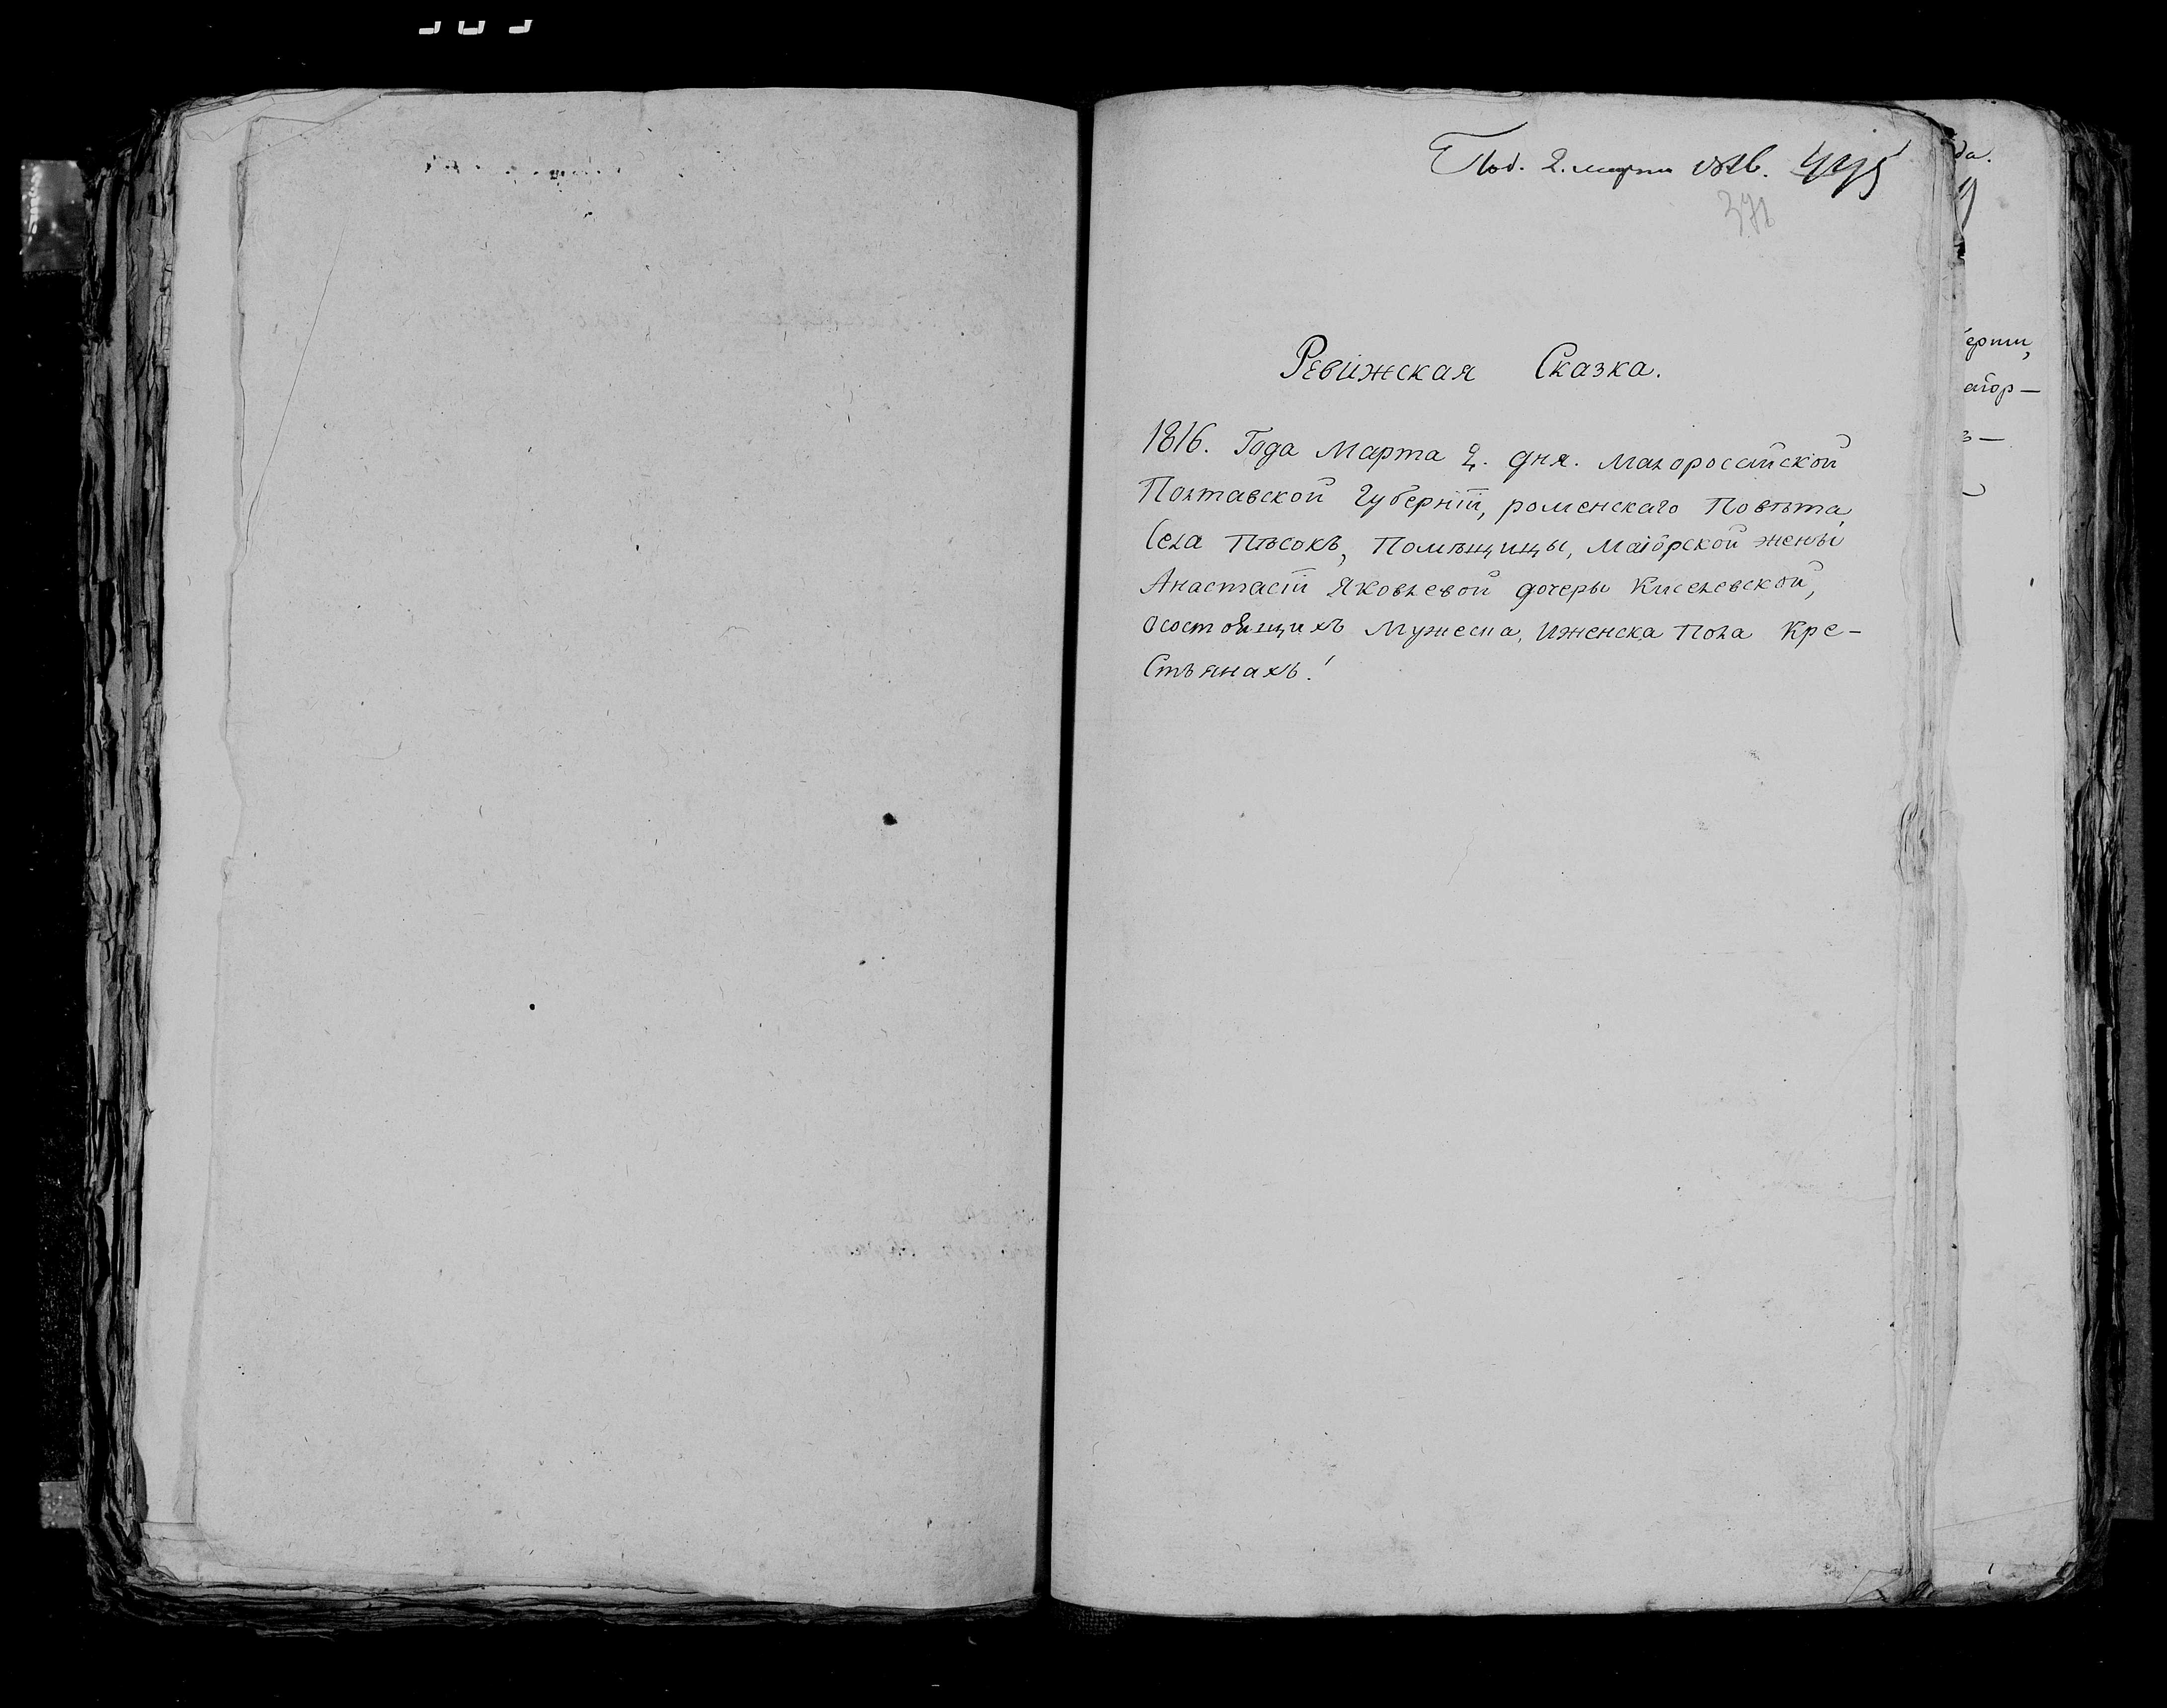 Под. 2. марта 1816. 495
371
Ревижская Сказка.
1816. Года Марта 2. дня. Малороссійской
Полтавской Губерніи, роменскаго Повѣта,
Села Пѣсокъ, Помѣщицы, Маіорской жены
Анастасіи Яковлевой дочеры Киселевской,
осостоящихъ Мужеска, Иженска Пола Кре-
Стьянахъ!
да.
ерніи,
аіор—